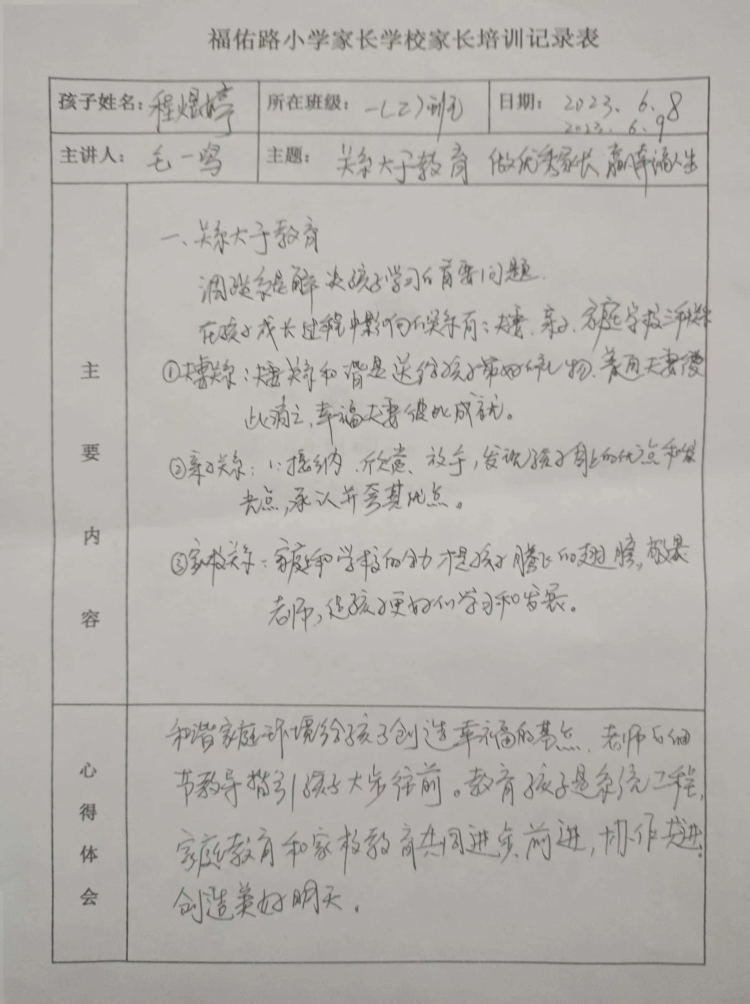 福佑路小学家长学校家长培训记录表
孩子姓名：程煜婷 所在班级：一(2)班 日期：2023.6.8
2023.6.9
主讲人：毛一鸣 主题：关系大于教育 做优秀家长 赢幸福人生
主要内容
一、关系大于教育
调整关系是解决孩子学习的首要问题.
在孩子成长过程中影响的关系有：夫妻、亲子、家庭学校三种关系
①夫妻关系：夫妻关系和谐是送给孩子最好的礼物、普通夫妻彼
此消立，幸福夫妻彼此成就。
②亲子关系：1：接纳、欣赏、放手，发现孩子身上的优点和
光点，承认并夸其优点。
③家校关系：家庭和学校的合力才是孩子腾飞的翅膀，
老师，让孩子更好的学习和发展。
心得体会
和谐家庭环境给孩子创造幸福的基点、老师的细
节教导指引孩子大步往前。教育孩子是系统工程，
家庭教育和家校教育共同进步前进，协作共进，
创造美好明天。